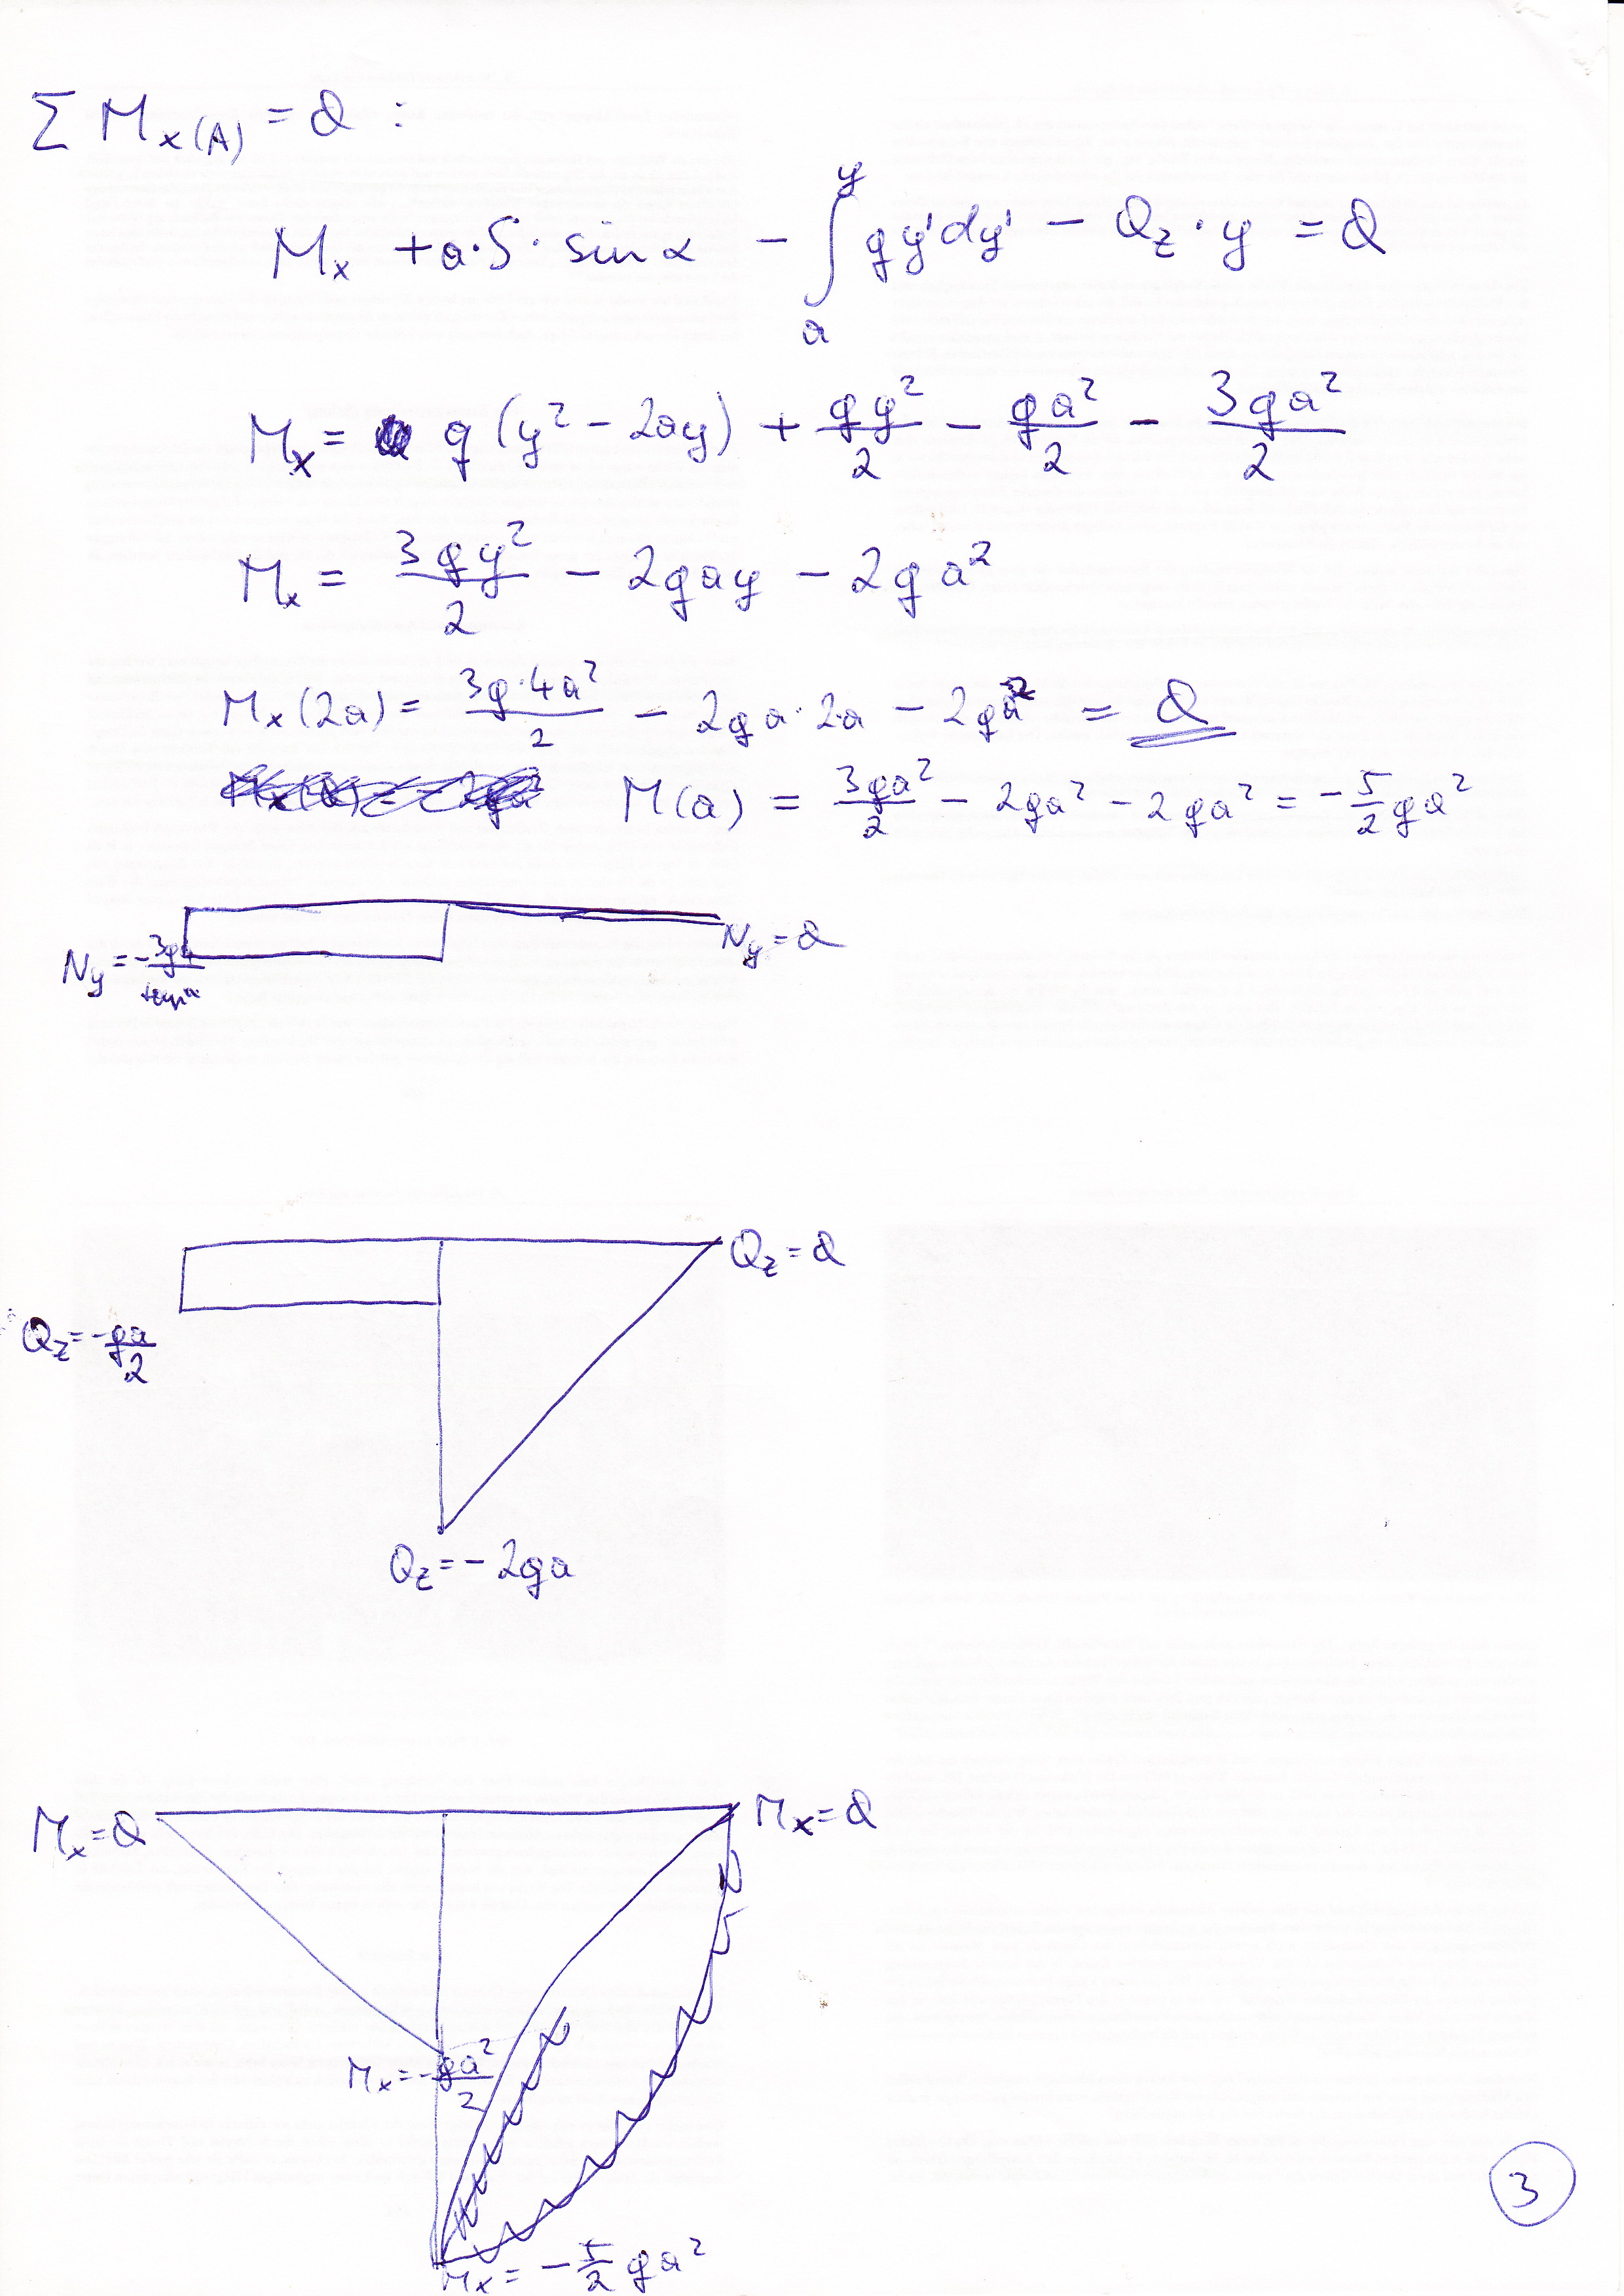 Σ M_x(A) = 0 :
M_x + a·S· sin α − ∫_a^y q y' dy' − Q_z · y = 0
M_x = q (y² − 2ay) + qy²/2 − qa²/2 − 3qa²/2
M_x = 3qy²/2 − 2qay − 2qa²
M_x(2a) = 3q·4a²/2 − 2qa·2a − 2qa² = 0
M(a) = 3qa²/2 − 2qa² − 2qa² = −5/2 qa²
N_y = 0
N_y = −3qa/tan α
Q_z = 0
Q_z = −qa/2
Q_z = −2qa
M_x = 0
M_x = 0
M_x = −qa²/2
M_x = −5/2 qa²
3